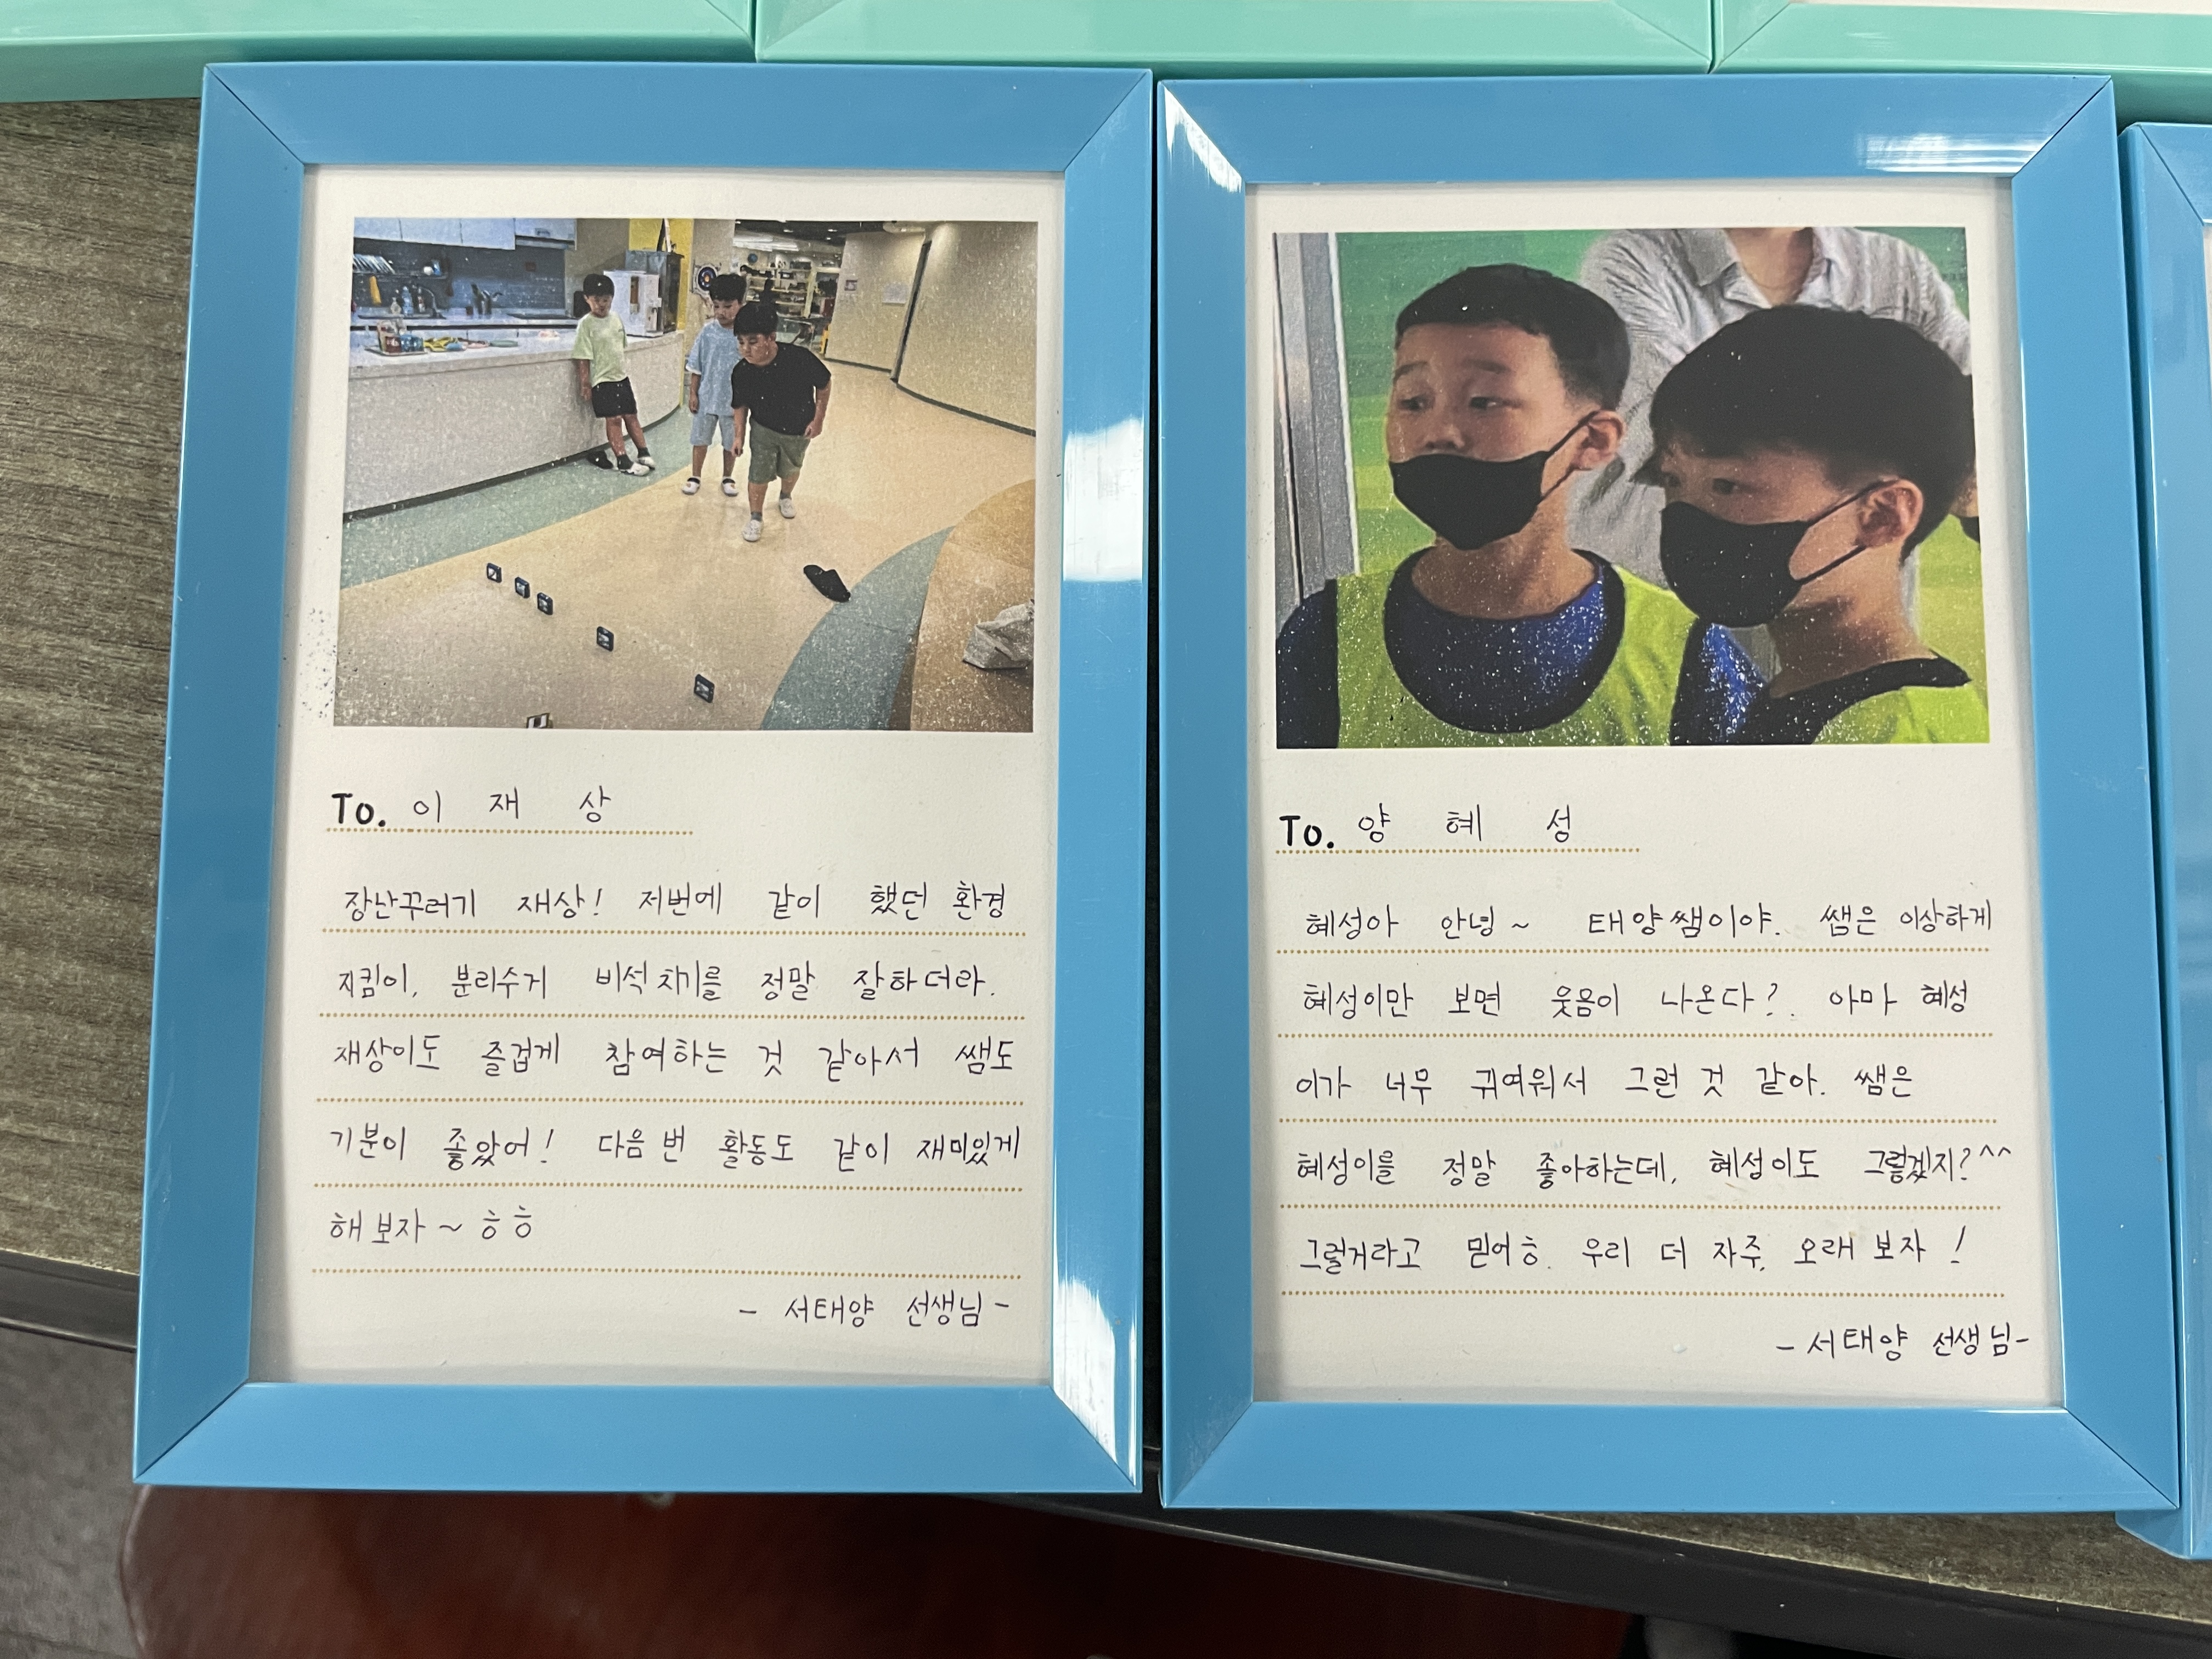 To. 이 재 상
장난꾸러기 재상! 저번에 같이 했던 환경
지킴이, 분리수거 비석치기를 정말 잘하더라.
재상이도 즐겁게 참여하는 것 같아서 쌤도
기분이 좋았어! 다음 번 활동도 같이 재미있게
해보자~ ㅎㅎ
- 서태양 선생님 -
To. 양 혜 성
혜성아 안녕~ 태양쌤이야. 쌤은 이상하게
혜성이만 보면 웃음이 나온다?. 아마 혜성
이가 너무 귀여워서 그런 것 같아. 쌤은
혜성이를 정말 좋아하는데, 혜성이도 그렇겠지?^^
그럴거라고 믿어ㅎ. 우리 더 자주, 오래 보자 !
- 서태양 선생님-